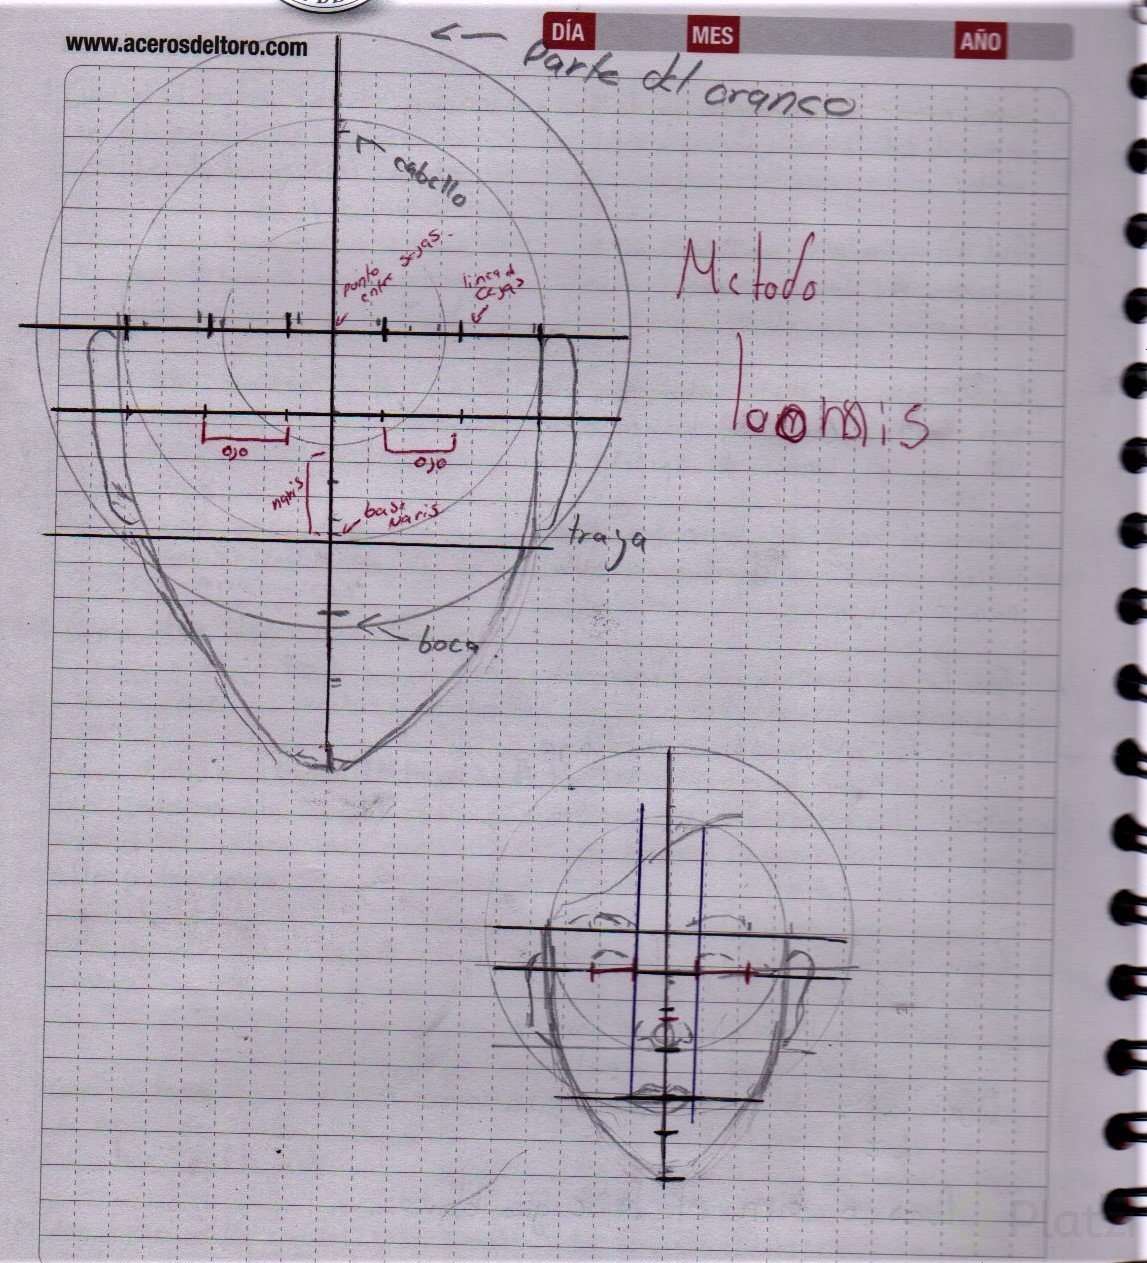 www.acerosdeltoro.com
DÍA
MES
AÑO
Parte del craneo
cabello
punto
entre sejas.
linea d
cejas
Metodo
loomis
ojo
ojo
naris
base
Naris
traga
boca
Platzi